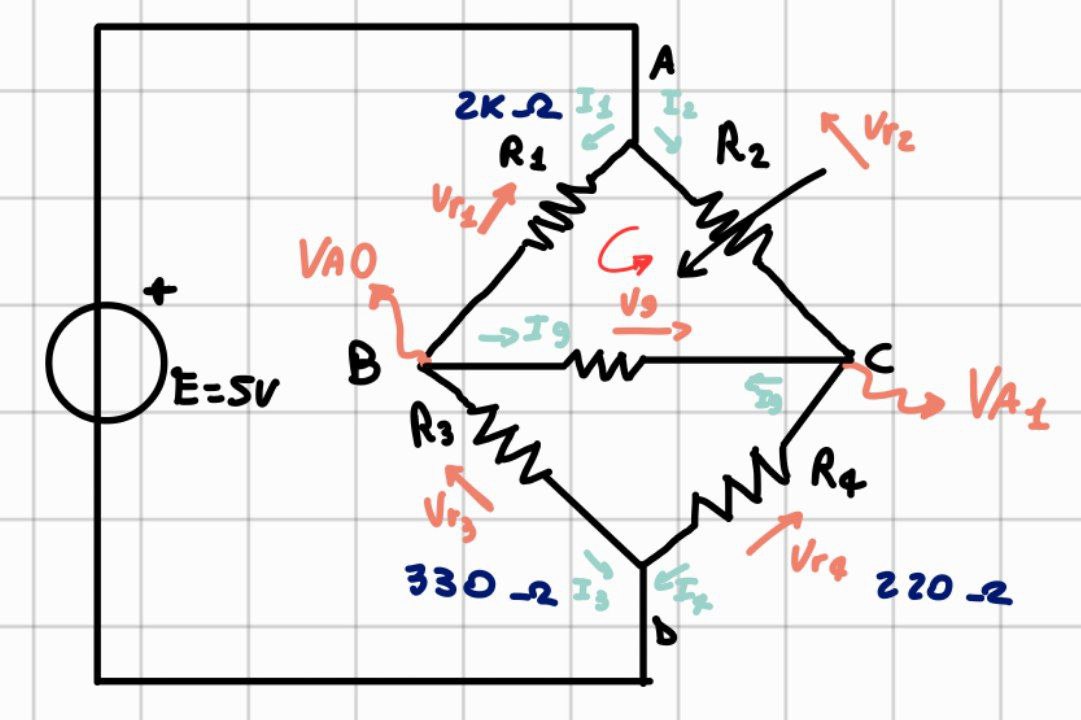 A
2KΩ I1 I2
R1 R2 Vr2
Vr1
VA0
Vg
+
B Ig C
E=5V Ig VA1
R3 R4
Vr3 Vr4
330Ω I3 I4 220Ω
D